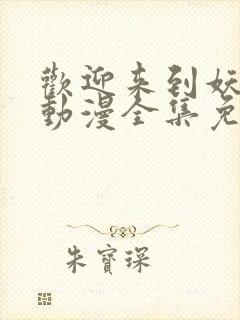 歡迎来到妖
動漫全集免
朱寶琛